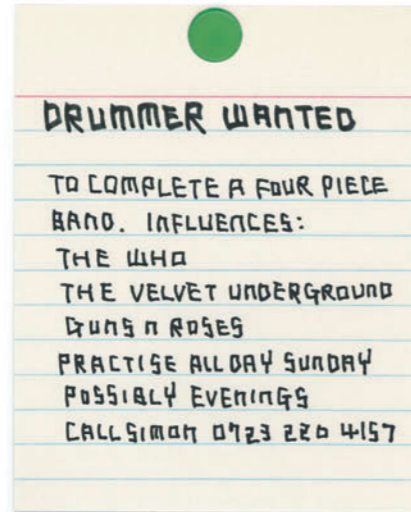 DRUMMER WANTED
TO COMPLETE A FOUR PIECE
BAND. INFLUENCES:
THE WHO
THE VELVET UNDERGROUND
GUNS N ROSES
PRACTISE ALL DAY SUNDAY
POSSIBLY EVENINGS
CALL SIMON 0723 220 4157